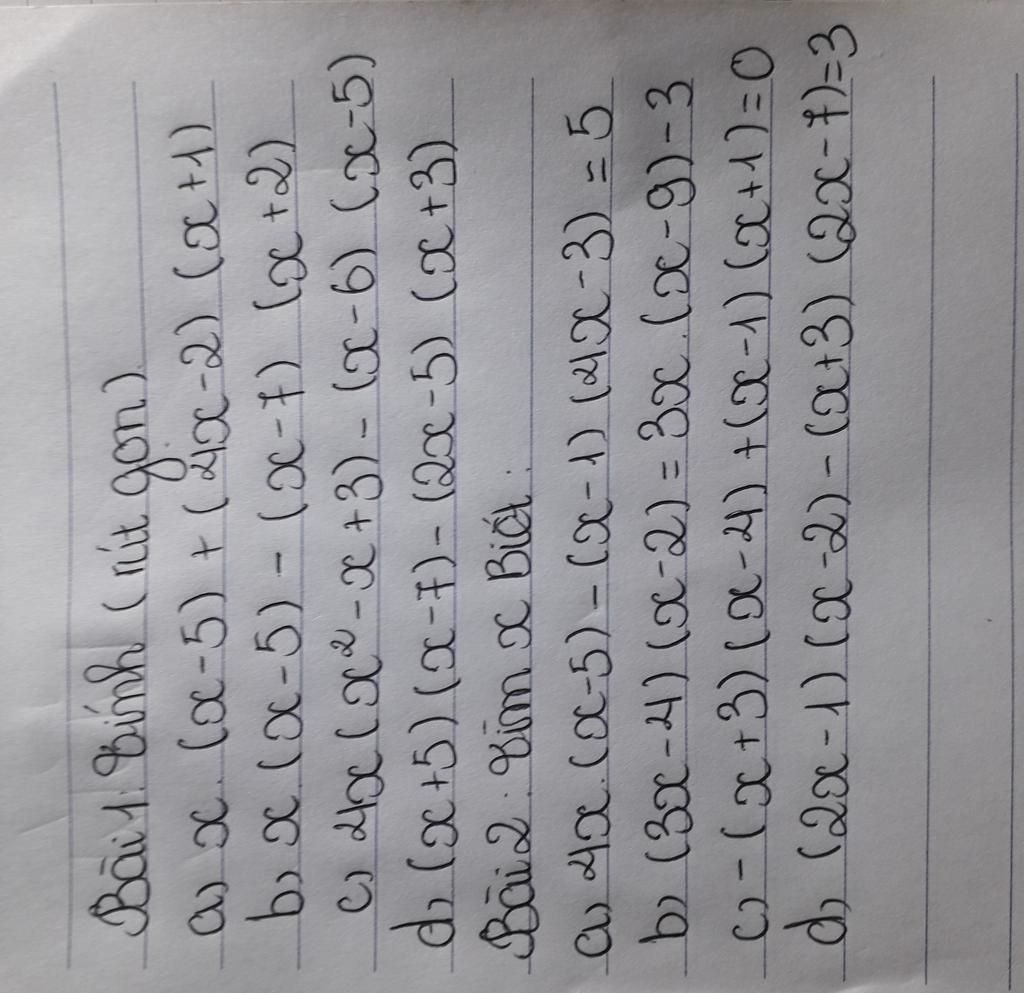 Bài 1: Tính (rút gọn).
a) x.(x-5) + (4x-2) (x+1)
b) x(x-5) - (x-7) (x+2)
c) 4x(x²-x+3) - (x-6) (x-5)
d) (x+5)(x-7) - (2x-5) (x+3)
Bài 2: Tìm x Biết:
a) 4x.(x-5) - (x-1) (4x-3) = 5
b) (3x-4) (x-2) = 3x.(x-9) - 3
c) -(x+3) (x-4) + (x-1) (x+1) = 0
d) (2x-1) (x-2) - (x+3) (2x-7) = 3